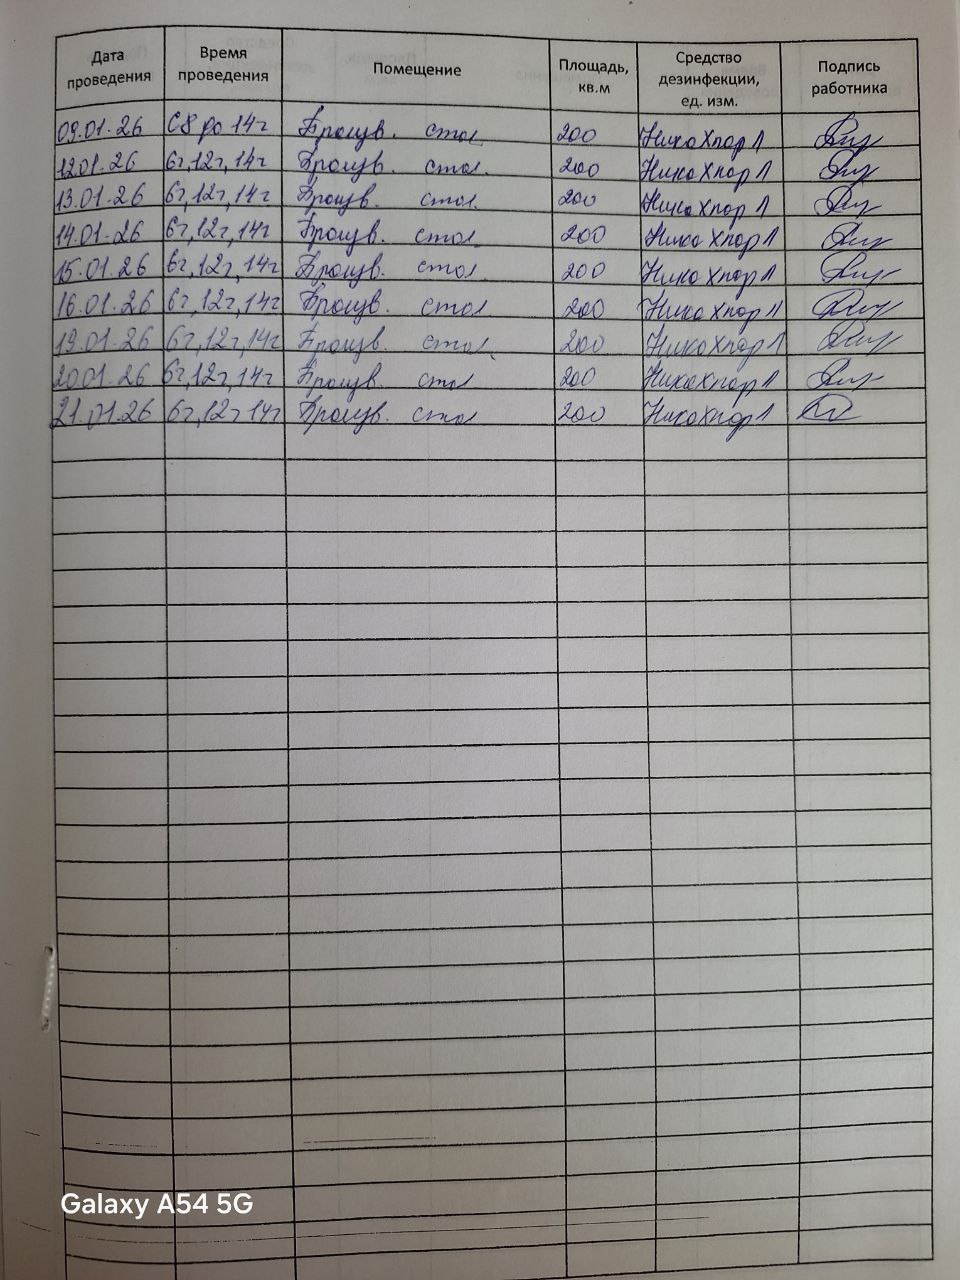 Дата проведения Время проведения Помещение Площадь, кв.м Средство дезинфекции, ед. изм. Подпись работника
09.01.26 С8 до 14ч Произв. стол 200 НикаХлор Л
12.01.26 6ч,12ч,14ч Произв. стол 200 НикаХлор Л
13.01.26 6ч,12ч,14ч Произв. стол 200 НикаХлор Л
14.01.26 6ч,12ч,14ч Произв. стол 200 Ника Хлор Л
15.01.26 6ч,12ч,14ч Произв. стол 200 Ника Хлор Л
16.01.26 6ч,12ч,14ч Произв. стол 200 Ника Хлор Л
19.01.26 6ч,12ч,14ч Произв. стол 200 НикаХлор Л
20.01.26 6ч,12ч,14ч Произв. стол 200 НикаХлор Л
21.01.26 6ч,12ч 14ч Произв. стол 200 НикаХлор Л
Galaxy A54 5G